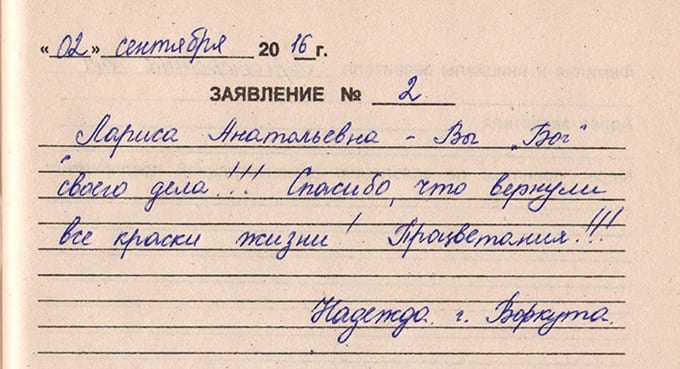 «02» сентября 2016 г.
ЗАЯВЛЕНИЕ № 2
Лариса Анатольевна - Вы „Бог"
своего дела!!! Спасибо, что вернули
все краски жизни! Процветания!!!
Надежда. г. Воркута.